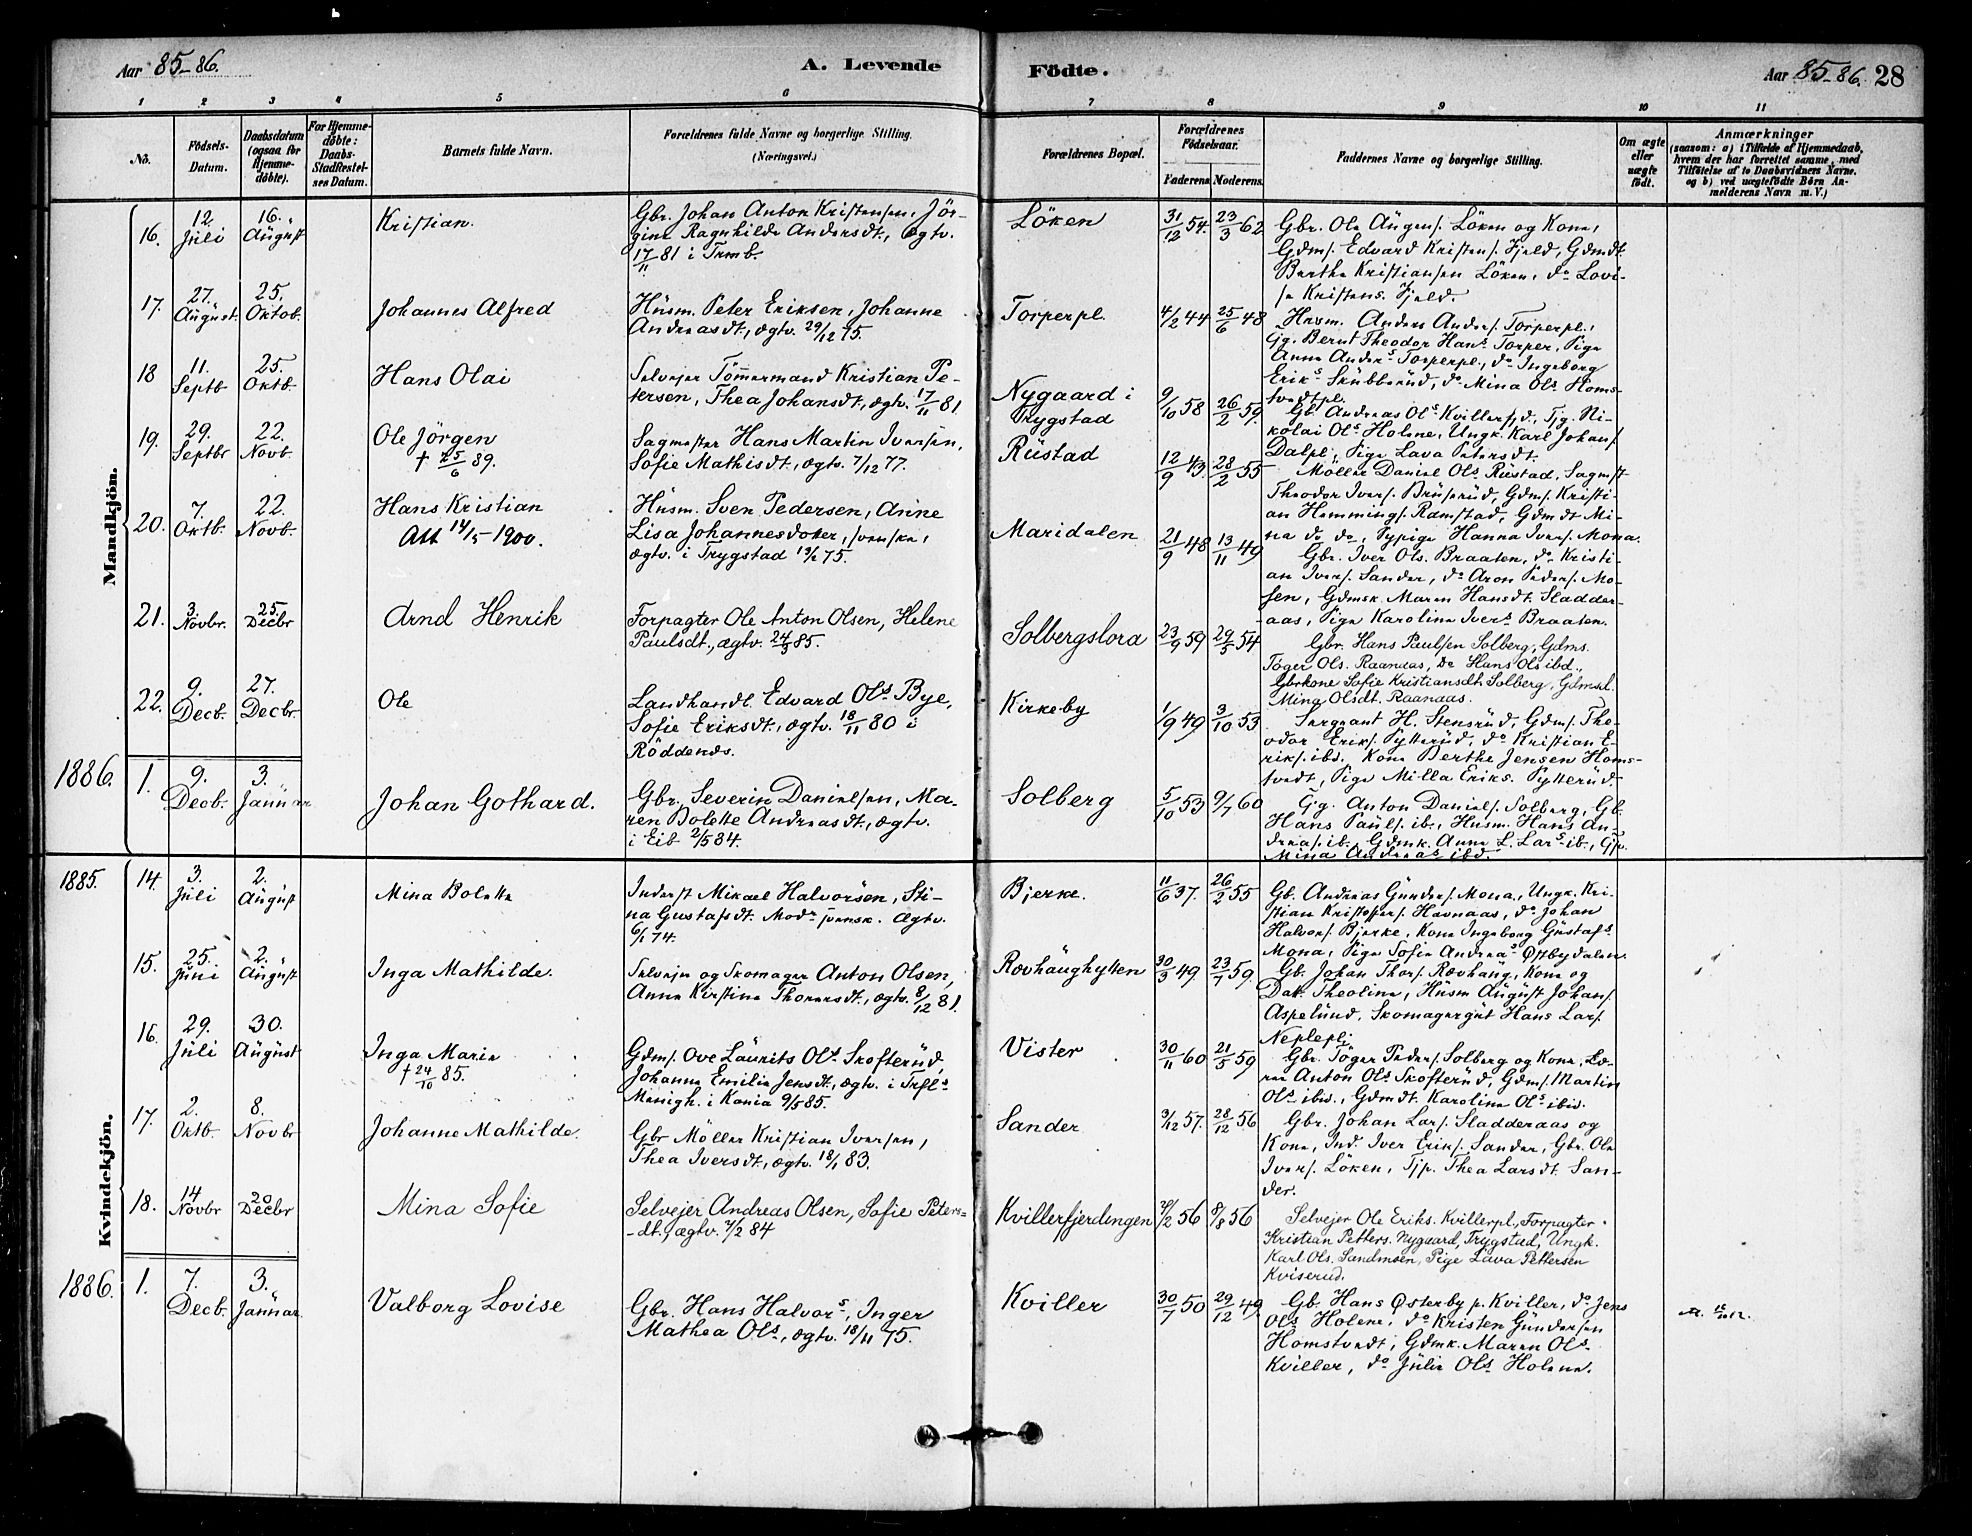 Aar 85-86.
A. Levende
Födte.
Aar 85-86. 28
1 2 3 4 5 6 7 8 9 10 11
No.
Födsels-Datum.
Daabsdatum (ogsaa for Hjemme-döbte).
For Hjemme-döbte: Daabs-Stadfæstel-ses Datum.
Barnets fulde Navn.
Forældrenes fulde Navne og borgerlige Stilling. (Næringsvei.)
Forældrenes Bopæl.
Forældrenes Födselsaar.
Faderens. Moderens.
Faddernes Navne og borgerlige Stilling.
Om ægte eller uægte födt.
Anmærkninger
(saasom: a) i Tilfælde af Hjemmedaab,
hvem der har forrettet samme, med
Tilföielse af to Daabsvidners Navne.
og b) ved uægtefödte Börn An-
melderens Navn m. V.)
Mandkjön.
16. 12. Juli 16. August
Kristian.
Gbr. Johan Anton Kristensen, Jör-
gine Ragnhilde Andersdt., ægtv.
17/11 81 i Trmb.
Löken 31/12 54. 23/3 62
Gbr. Ole Augens. Löken og Kone,
Gdms. Edvard Kristens. Hjeld, Gdmdt.
Berthe Kristiansen Löken, do Lovi-
se Kristens. Hjeld.
17. 27. August. 25. Oktob.
Johannes Alfred
Husm. Peter Eriksen, Johanne
Andreasdt., ægtv. 29/12 75.
Torperpl. 4/2 44 25/6 48
Husm. Anders Anders. Torperpl.,
Gg. Bernt Theodor Hans. Torper, Pige
Anne Anders. Torperpl., do Ingeborg
Eriks. Skubberud, do Mina Ols. Homs-
tvedtpl.
18 11. Septb 25. Oktb.
Hans Olai
Selvejer Tömmermand Kristian Pe-
tersen, Thea Johansdt., ægtv. 17/11 81.
Nygaard i
Trygstad 9/10 58 26/2 59.
Gb. Andreas Ols. Kvillerfjd., Tjg. Ni-
kolai Ols. Holene, Ungk. Karl Johans.
Dalpl., Pige Lava Petersdt.
19. 29. Septbr 22. Novb.
Ole Jörgen
† 25/6 89.
Sagmester Hans Martin Iversen,
Sofie Mathisdt., ægtv. 7/12 77.
Rustad 12/9 43. 28/2 55
Möller Daniel Ols. Rustad, Sagmst
Theodor Ivers. Bruserud, Gdms. Kristi-
an Hemmings. Ramstad, Gdmdt. Mi-
na do do, Pige Hanna Ivers. Mona.
20. 7. Oktb. 22. Novb.
Hans Kristian
Att 14/5 1900.
Husm. Sven Pedersen, Anne
Lisa Johannesdoter, svenske,
ægtv. i Trygstad 13/2 75.
Maridalen 21/9 48 13/11 49
Gbr. Iver Ols. Braaten, do Kristi-
an Ivers. Sander, do Aron Peders. Mo-
sen, Gdmsk. Maren Hansdt. Sladder-
aas, Pige Karoline Ivers. Braaten.
21. 3. Novbr. 25. Decbr
Arnd Henrik
Forpagter Ole Anton Olsen, Helene
Paulsdt., ægtv. 24/5 85.
Solbergslora 23/9 59 29/5 54
Gbr. Hans Paulsen Solberg, Gdms.
Töger Ols. Raanaas, Do Hans Ols ibd.,
Gbrkone Sofie Kristiansdt. Solberg, Gdmsd.
Mina Olsdt. Raanaas.
22. 9. Decb. 27. Decbr.
Ole
Landhandl. Edvard Ols. Bye,
Sofie Eriksdt., ægtv. 18/11 80 i
Röddenes.
Kirkeby 1/9 49 3/10 53
Sergeant H. Stensrud, Gdms. The-
odor Eriks. Pytterud, do Kristian E-
riks. ibd. Kone Berthe Jensen Homs-
tvedt, Pige Milla Eriks. Pytterud.
1886. 1. 9. Decb. 3. Januar
Johan Gothard.
Gbr. Severin Danielsen, Ma-
ren Bolette Andreasdt., ægtv.
i Eib 2/5 84.
Solberg 5/10 53 9/7 60
Gg. Anton Daniels. Solberg, Gb.
Hans Pauls. ib., Husm. Hans An-
dreas. ib., Gdmk. Anne L. Lars. ib.,
Mina Andreas. ibd.
Kvindekjön.
1885. 14. 3. Juli 2. August
Mina Bolette
Inderst Mikael Halvorsen, Sti-
na Gustafsdt. Modr svensk. Ægtv.
6/1 74.
Bjerke. 11/6 37. 26/2 55
Gb. Andreas Gunders. Mona, Ungk. Kri-
stian Kristoffers. Havnaas, do Johan
Halvors. Bjerke, Kone Ingeborg Gustafs.
Mona, Pige Sofie Andreas. Østbydalen.
15. 25. Juni 2. August
Inga Mathilde.
Selvejer og Skomager Anton Olsen,
Anne Kirstine Thorersdt., ægtv. 8/12 81.
Rovhaughytten 30/3 49 23/7 59.
Gb. Johan Thors. Rovhaug, Kone og
Datr. Theoline, Husm August Johans.
Aspelund, Skomagergut Hans Lars.
Neplepl.
16. 29. Juli 30. August
Inga Marie
† 24/10 85.
Gdms. Ove Laurits Ols. Skofterud,
Johanne Emilie Jensdt., ægtv. i Trfl.
Menigh. i Kania 9/5 85.
Vister 30/11 60 21/5 59
Gbr. Töger Peders. Solberg og Kone, Læ-
rer Anton Ols. Skofterud, Gdms. Martin
Ols. ibid., Gdmdt. Karoline Ols. ibid.
17. 2. Oktb. 8. Novbr
Johanne Mathilde.
Gbr Möller Kristian Iversen,
Thea Iversdt., ægtv. 18/1 83.
Sander 3/12 57. 28/12 56
Gbr. Johan Lars. Sladderaas og
Kone, Ind. Iver Eriks. Sander, Gbr. Ole
Ivers. Löken, Tjp. Thea Larsdt. San-
der.
18. 14 Novbr 20 Decbr
Mina Sofie
Selvejer Andreas Olsen, Sofie Peters-
-dt., ægtv. 7/2 84
Kvillerfjerdingen 28/2 56 8/8 56
Selvejer Ole Eriks. Kvillerpl., Forpagter
Kristian Petters. Nygaard, Trygstad, Ungk.
Karl Ols. Sandmoen, Pige Lava Pettersen
Kviserud.
1886. 1. 7. Decb. 3. Januar
Valborg Lovise
Gbr. Hans Halvors., Inger
Mathea Ols., ægtv. 18/11 75.
Kviller 30/7 50 29/12 49
Gb. Hans Østerby p. Kviller, do Jens
Ols. Holene, do Kristen Gundersen
Homstvedt, Gdmk. Maren Ols.
Kviller, do Julie Ols. Holene.